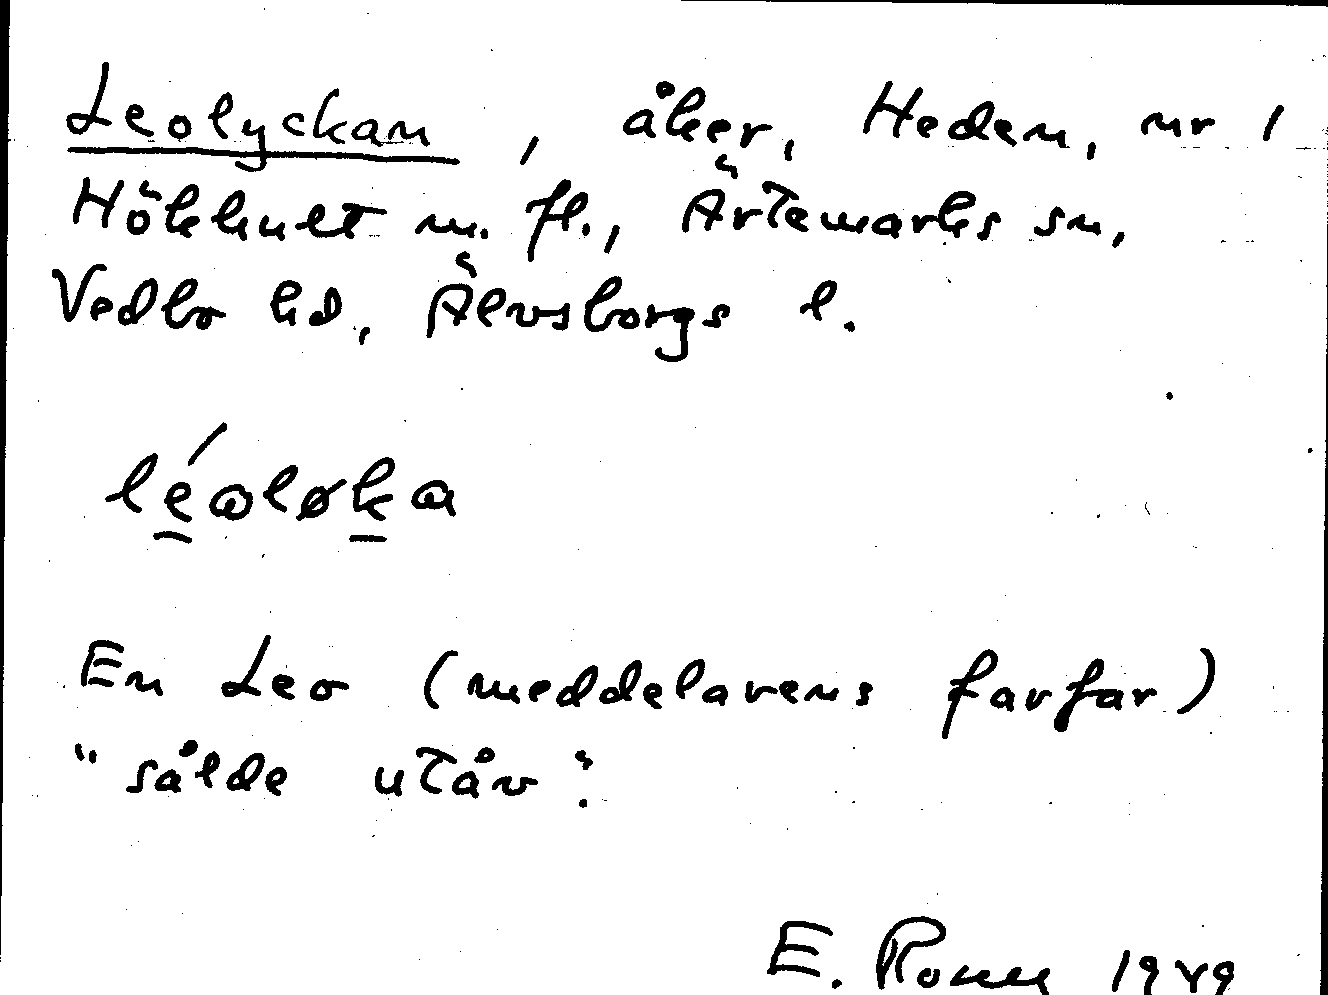 Leolyckan, åker, Heden, nr 1
Hökhult m. fl., Ärtemarks sn,
Vedbo hd, Älvsborgs l.
léωløka
En Leo (meddelarens farfar)
"sålde utåv".
E. 1949